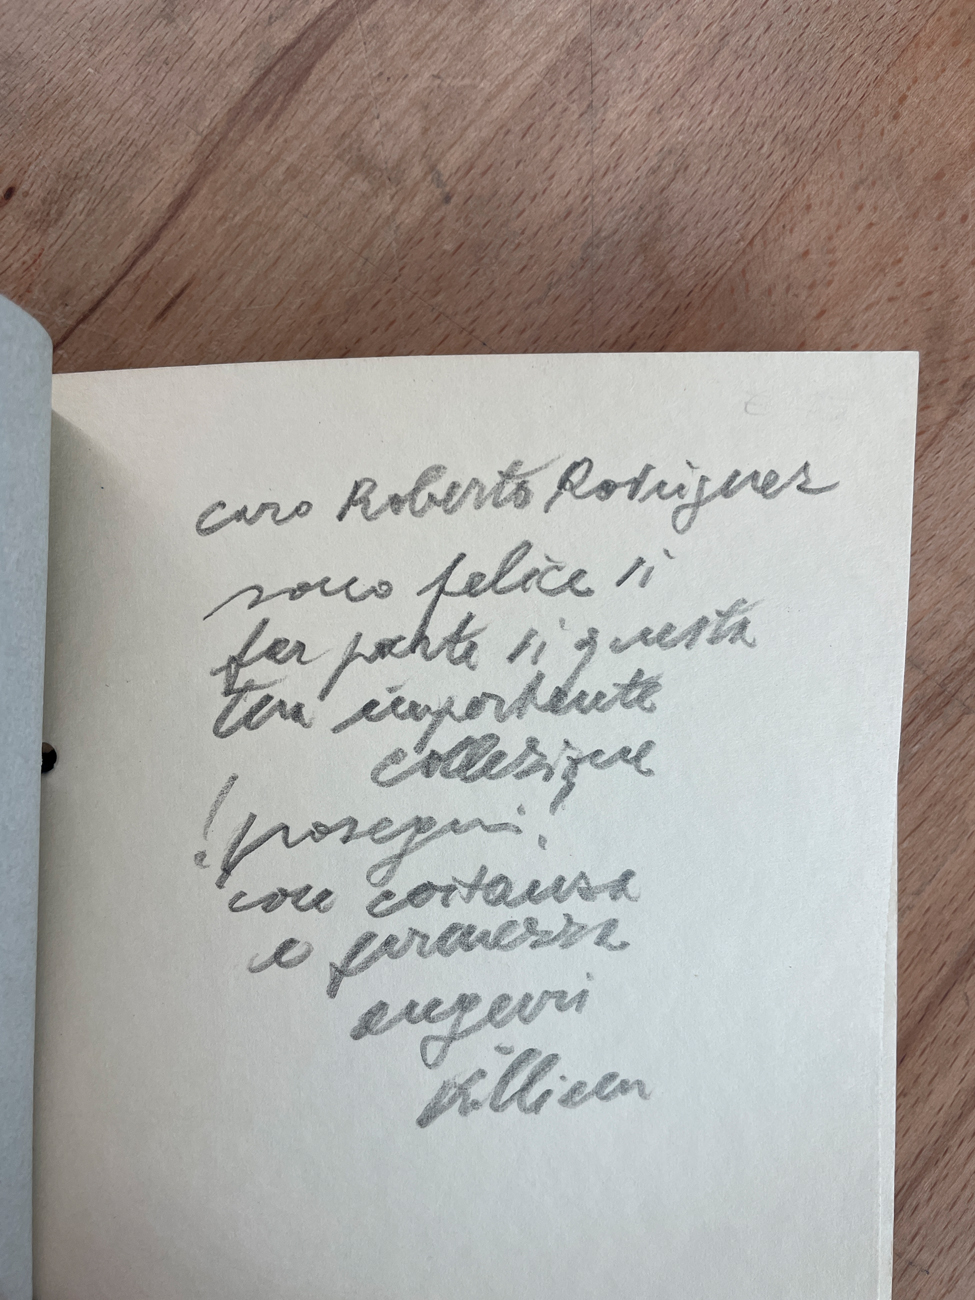 caro Roberto Rodriguez
sono felice di
far parte di questa
tua importante
collezione
! prosegui !
con costanza
e fermezza
auguri